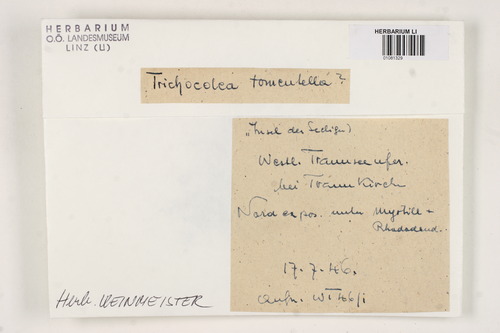 HERBARIUM
O.Ö. LANDESMUSEUM
LINZ (LI)
HERBARIUM LI
01081329
Trichocolea tomentella?
"Insel der Seeligen)
Westl. Traunseeufer.
bei Traunkirch
Nordexpos. unter Myrtill-
Rhododend.
17.7.46.
aufn. WT 46/1
Herb. WEINMEISTER